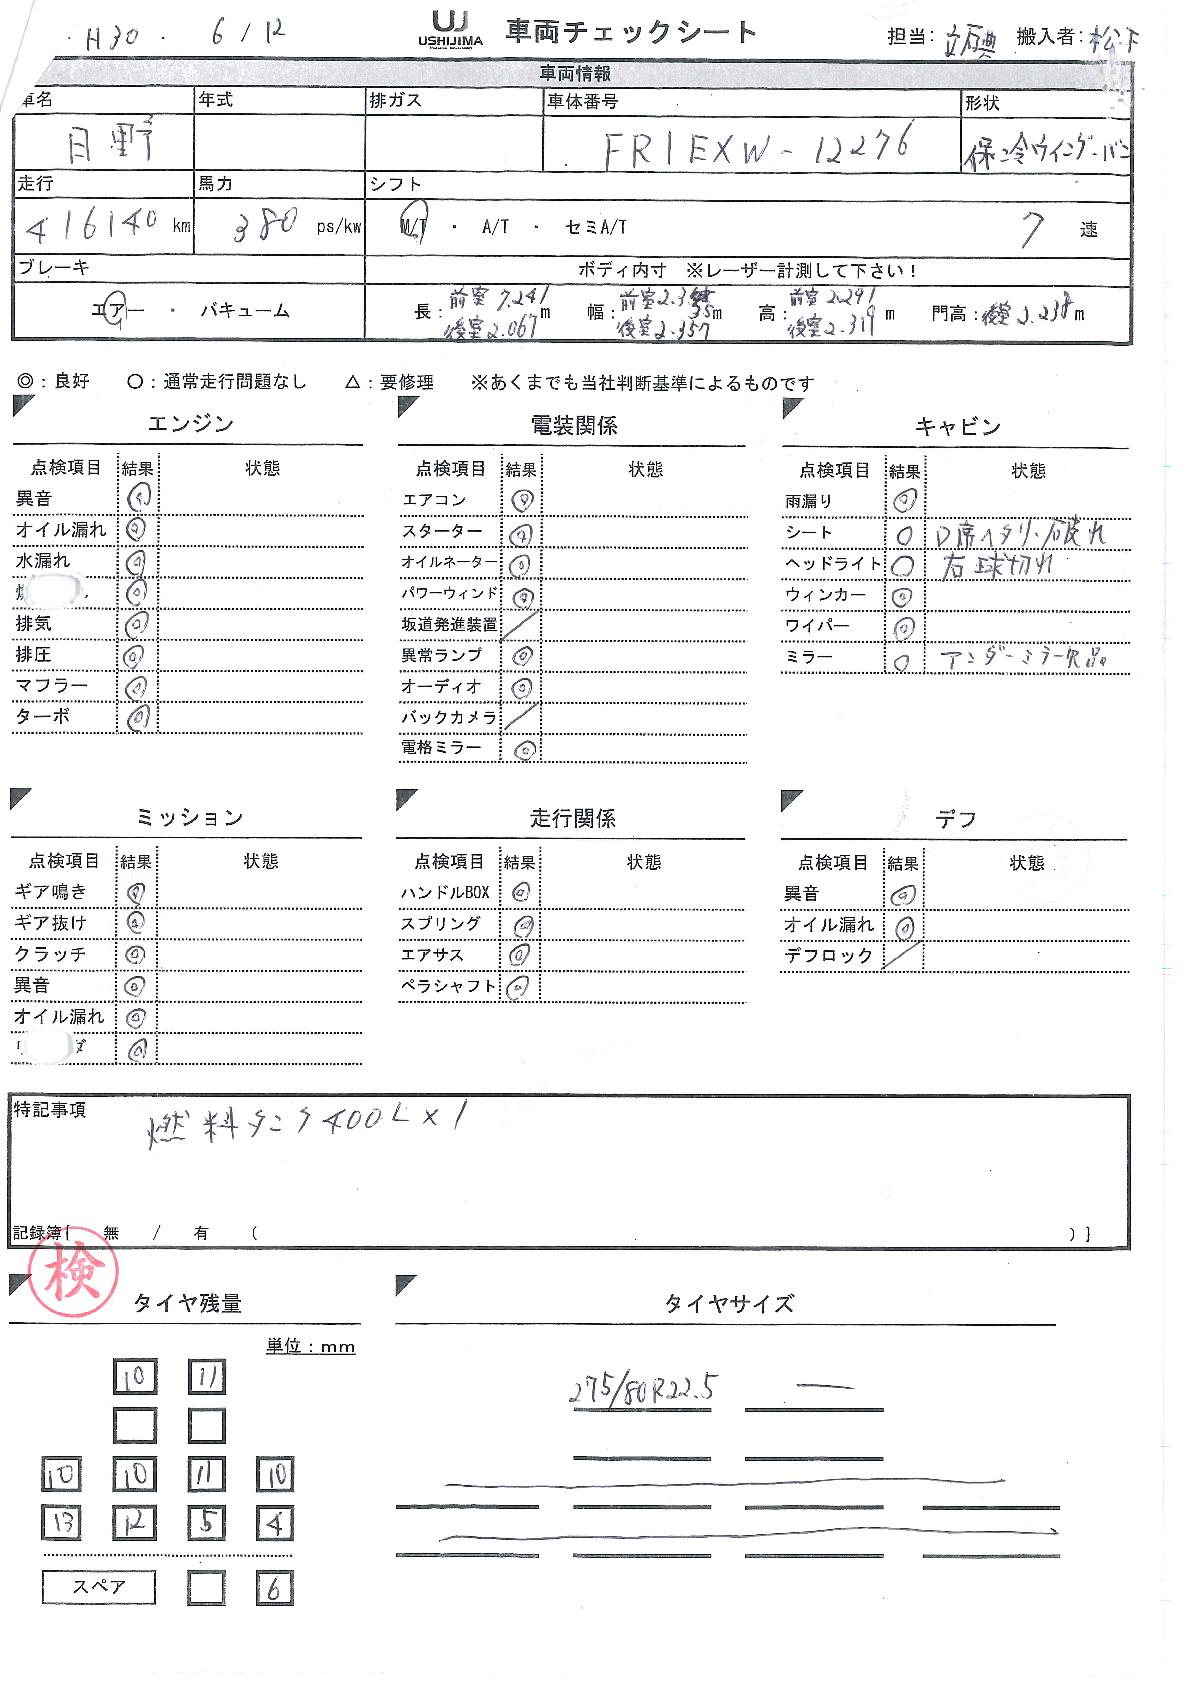 H30. 6/12 UJ USHIJIMA 車両チェックシート 担当: 搬入者:松下
車両情報
車名 年式 排ガス 車体番号 形状
日野 FR1EXW-12276 保冷ウイング・バン
走行 馬力 シフト
416140km 380 ps/kw M/T ・ A/T ・ セミA/T 7 速
ブレーキ ボディ内寸 ※レーザー計測して下さい!
エアー ・ バキューム 長: 前室7.241 m 幅: 前室2.3 35 m 高: 前室2.291 m 門高: 後室2.238 m
後室2.067 後室2.357 後室2.319
◎:良好 ○:通常走行問題なし △:要修理 ※あくまでも当社判断基準によるものです
エンジン
点検項目 結果 状態
異音 ◎
オイル漏れ ◎
水漏れ ◎
◎
排気 ◎
排圧 ◎
マフラー ◎
ターボ ◎
電装関係
点検項目 結果 状態
エアコン ◎
スターター ◎
オイルネーター ◎
パワーウィンド ◎
坂道発進装置 /
異常ランプ ◎
オーディオ ◎
バックカメラ /
電格ミラー ◎
キャビン
点検項目 結果 状態
雨漏り ◎
シート ○ D席ヘタリ・破れ
ヘッドライト ○ 右球切れ
ウィンカー ◎
ワイパー ◎
ミラー ○ アンダーミラー欠品
ミッション
点検項目 結果 状態
ギア鳴き ◎
ギア抜け ◎
クラッチ ◎
異音 ◎
オイル漏れ ◎
◎
走行関係
点検項目 結果 状態
ハンドルBOX ◎
スプリング ◎
エアサス ◎
ペラシャフト ◎
デフ
点検項目 結果 状態
異音 ◎
オイル漏れ ◎
デフロック /
特記事項
燃料タンク400L×1
記録簿[ 無 / 有 ( )]
検
タイヤ残量
単位:mm
10 11
10 10 11 10
13 12 5 4
スペア 6
タイヤサイズ
275/80R22.5 —